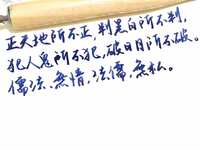 正天地所不正,判黑白所不判,
犯人鬼所不犯,破日月所不破。
儒法,無情,法儒,無私。